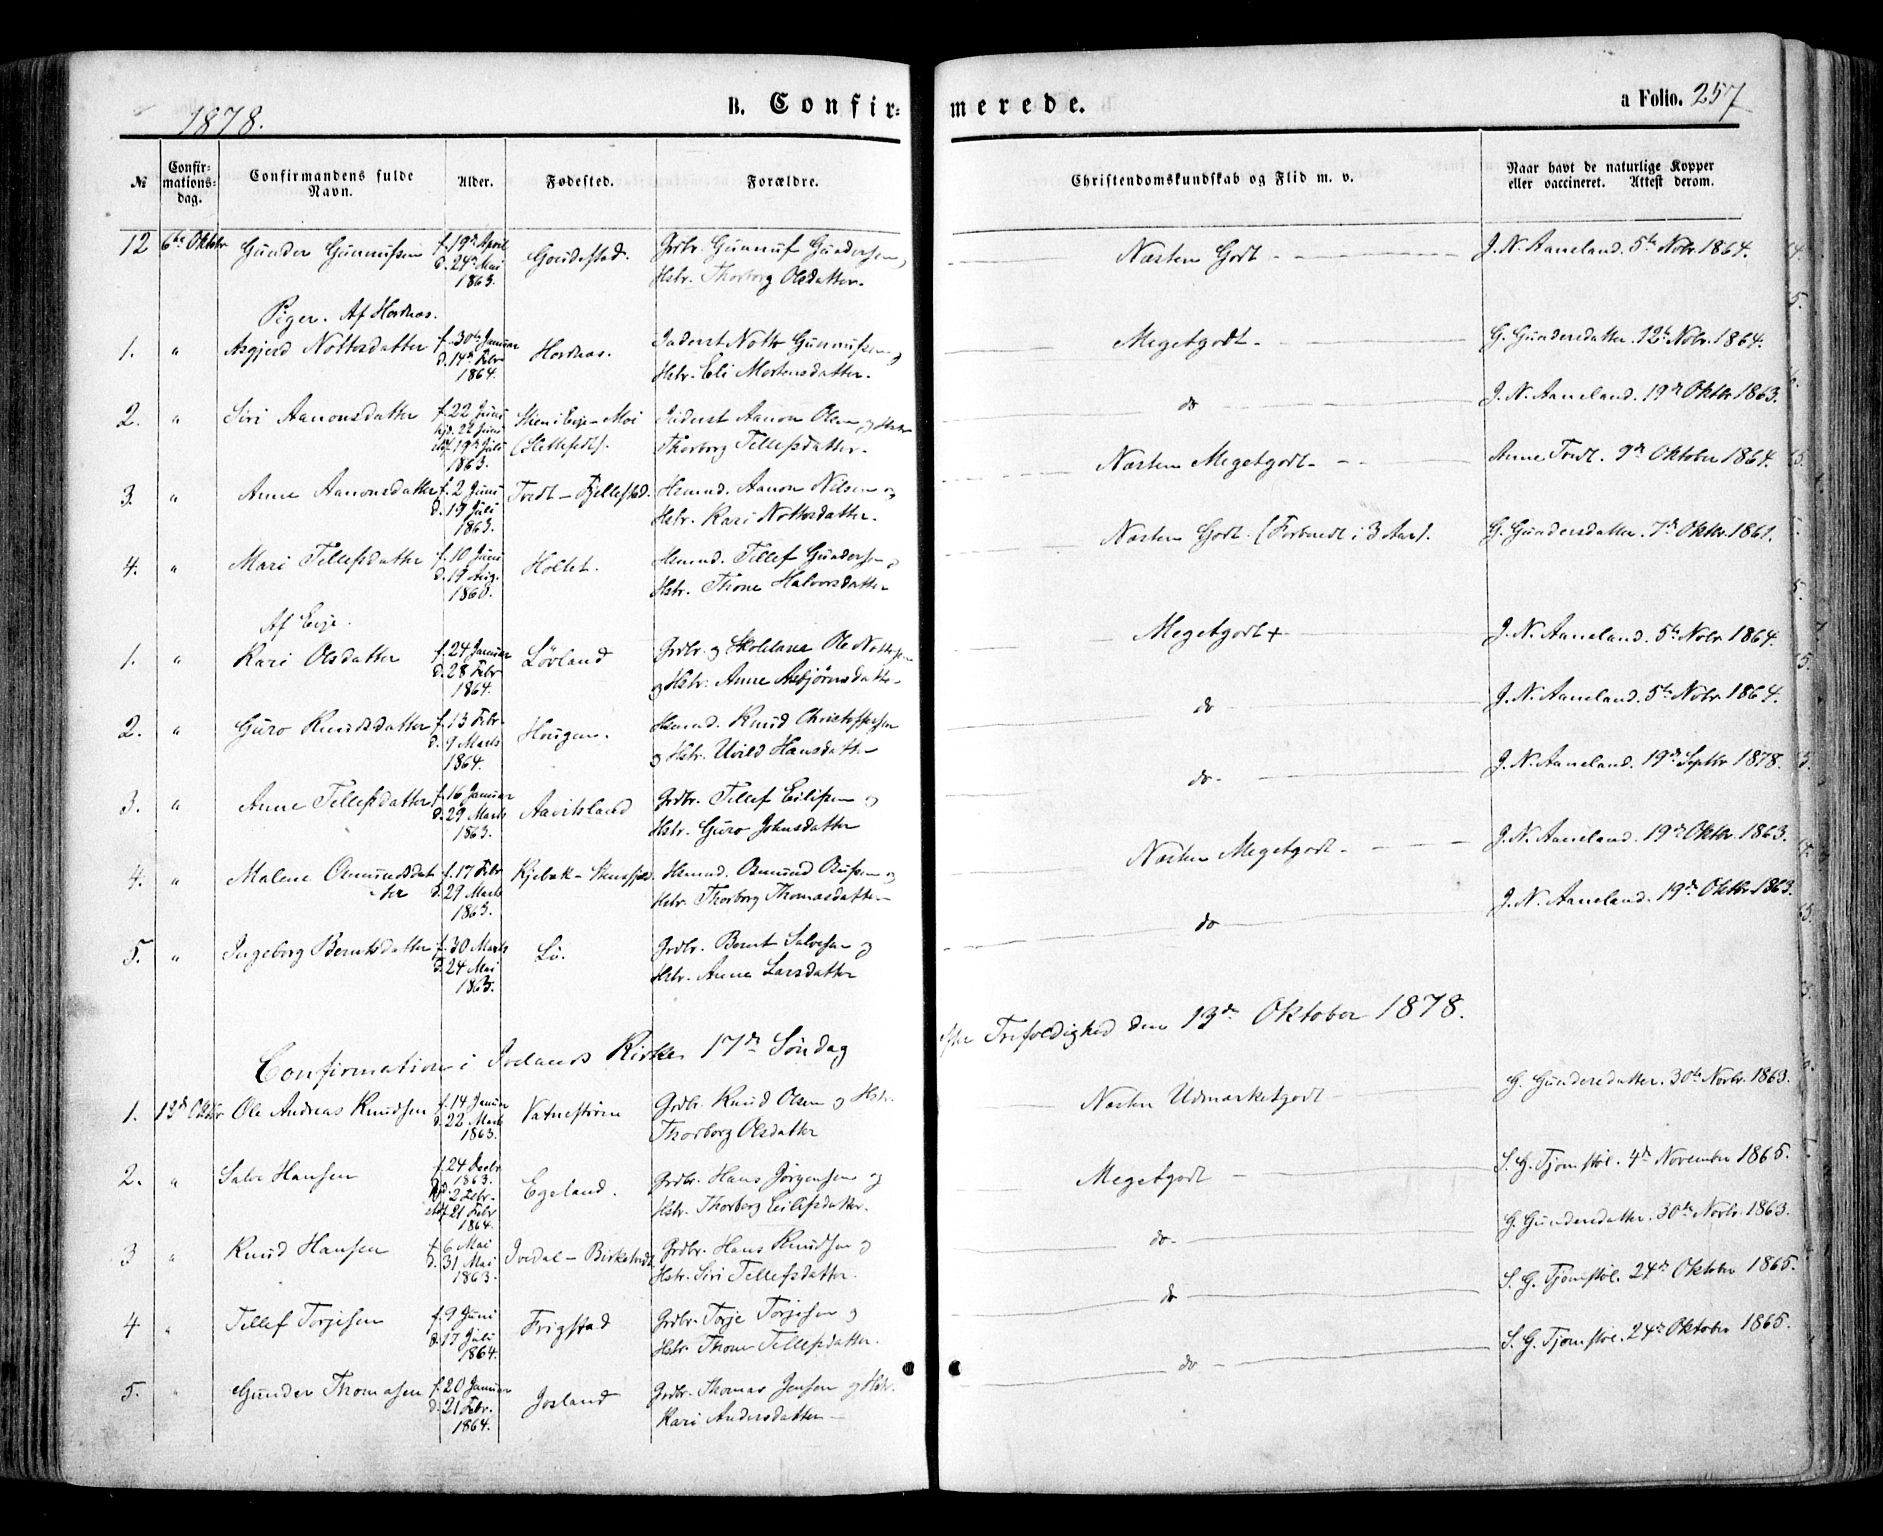 1878.
B. Confirmerede.
a Folio. 257
№
Confirmationsdag.
Confirmandens fulde Navn.
Alder.
Fødested.
Forældre.
Christendomskundskab og Flid m. v.
Naar havt de naturlige Kopper eller vaccineret. Attest derom.
12 6te Oktbr Gunder Gunnufsen f. 19de April d. 24de Mai 1863. Goudestad. Grdbr. Gunnuf Gundersen, Hstr. Thorborg Olsdatter. Næsten Godt J. N. Aaneland. 5te Nobr. 1864.
Piger. Af Hornæs.
1. " Asgjerd Nottosdatter f. 30te Januar d. 14de Febr 1864. Hornæs. Inderst Notto Gunnufsen og Hstr. Eli Mortensdatter. Megetgodt G. Gundersdatter. 12te Nobr. 1864.
2. " Siri Aanonsdatter f. 22 Juni hjd. 22 Juni 19de Juli 1863. Evje - Moi Inderst Aanon Olsen og Hstr Thorborg Tellefsdatter. do J. N. Aaneland. 19de Oktbr 1863.
3. " Anne Aanonsdatter f. 2 Juni d. 19 Juli 1863. Tvedt - Fjellestad. Hsmnd. Aanon Nilsen og Hstr. Kari Nottosdatter. Næsten Megetgodt Anne Tvedt. 9de Oktober 1864.
4. " Mari Tellefsdatter f. 10 Juni d. 19 Aug. 1860. Holtet. Hsmnd. Tellef Gundersen og Hstr. Thone Halvorsdatter Næsten Godt. (Forbuedt i 3 Aar). G. Gundersdatter. 7de Oktbr 1861.
Af Evje.
1. " Kari Olsdatter f. 24 Januar d. 28 Febr 1864. Løvland Grdbr. og Skolelærer Ole Nottosen og Hstr. Anne Asbjørnsdatter Megetgodt + J. N. Aaneland. 5te Nobr 1864.
2. " Guro Knudsdatter f. 13 Febr. d. 9 Marts 1864. Hougen. Hsmnd. Knud Christophersen og Hstr. Uvild Hansdatter do J. N. Aaneland. 5te Nobr 1864.
3. " Anne Tellefsdatter f. 16 Januar d. 29 Marts 1863. Aavitsland Grdbr. Tellef Eilifsen og Hstr. Guro Johnsdatter do. J. N. Aaneland. 19de Septbr 1878.
4. " Malene Osmundsdatter f. 17 Febr d. 29 Marts 1863. Kjebæk - Hsmnd. Osmund og Hstr. Thorborg Thomasdatter Næsten Megetgodt J. N. Aaneland. 19de Oktbr 1863.
5. " Ingeborg Berntsdatter f. 30 Marts d. 24 Mai 1863. Lø. Grdbr. Bernt Salvesen og Hstr. Anne Larsdatter do J. N. Aaneland. 19de Oktbr 1863.
Confirmation i Ivelands Kirke 17de Søndag efter Trefoldighed den 13de Oktober 1878.
1. 13de Oktbr. Ole Andreas Knudsen f. 14 Januar d. 22 Marts 1863. Vatnestrøm Grdbr. Knud Olsen og Hstr. Thorborg Olsdatter Næsten Udmærketgodt G. Gundersdatter. 30te Novbr. 1863.
2. " Salve Hansen f. 24 Decbr 1863. hjd. 2 Febr. stdf. 21 Febr 1864. Egeland. Grdbr. Hans Jørgensen og Hstr. Thorborg Eilifsdatter. Megetgodt S. G. Tjomstøl. 4de November 1865.
3 " Knud Hansen f. 6 Mai d. 31 Mai 1863. Ivedal - Birketvedt Grdbr. Hans Knudsen og Hstr. Siri Tellefsdatter. do. G. Gundersdatter. 30te Novbr. 1863.
4 " Tellef Torjesen f. 9 Juni d. 17 Juli 1864. Frigstad Grdbr. Torje Torjesen og Hstr. Thone Tellefsdatter. do S. G. Tjomstøl. 24de Oktober 1865.
5. " Gunder Thomasen f. 20 Januar d. 21 Febr. 1864. Josland Grdbr. Thomas Jensen og Hstr. Kari Andersdatter do S. G. Tjomstøl. 24de Oktober 1865.